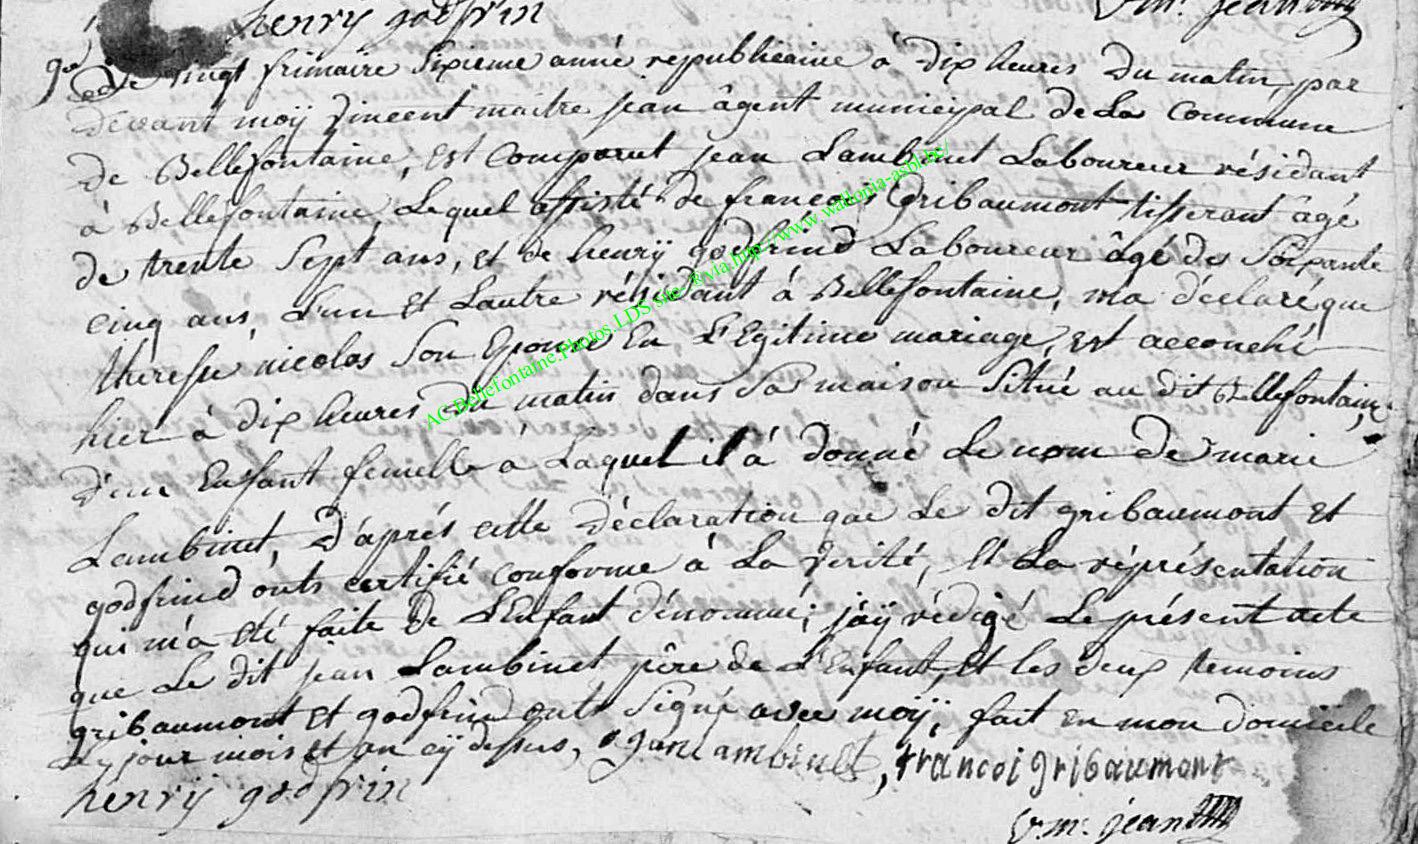 henry godfrin
v. m. jean
9e
Le vingt frimaire sixieme anné republicaine à dix heures du matin, par
devant moÿ vincent maitre jean âgent municipal de La Commune
de Bellefontaine, est comparut jean Lambinet Laboureur résidant
à Bellefontaine, Lequel assisté de françois Gribaumont tisserant âgé
de trente sept ans, et de henrÿ godfrind Laboureur âgé des Soixante
cinq ans, L'un Et Lautre résidant à Bellefontaine, m'a déclaré que
therese nicolas Son Epouse En L'Egitime mariage, est accouché
hier à dix heures du matin dans Sa maison Situé au dit Bellefontaine,
d'un Enfant femelle à Laquel il à donné Le nom de marie
Lambinet, d'áprés cette déclaration que Le dit gribaumont Et
godfrind onts certifié conforme à La verité, Et La réprésentation
qui m'a été faite de L'Enfant dénommé; j'aÿ rédigé Le présent acte
que Le dit jean Lambinet pêre de L'Enfant, Et les deux temoins
gribaumont Et godfrind onts Signé avec moÿ; fait En mon domicile
Ly jour mois et an cÿ dessus, jean lambinet, francoi gribaumont
henrÿ godfrin
v. m. jean
AC.Bellefontaine.Photos.LDS site-®via.http://www.wallonia-asbl.be/